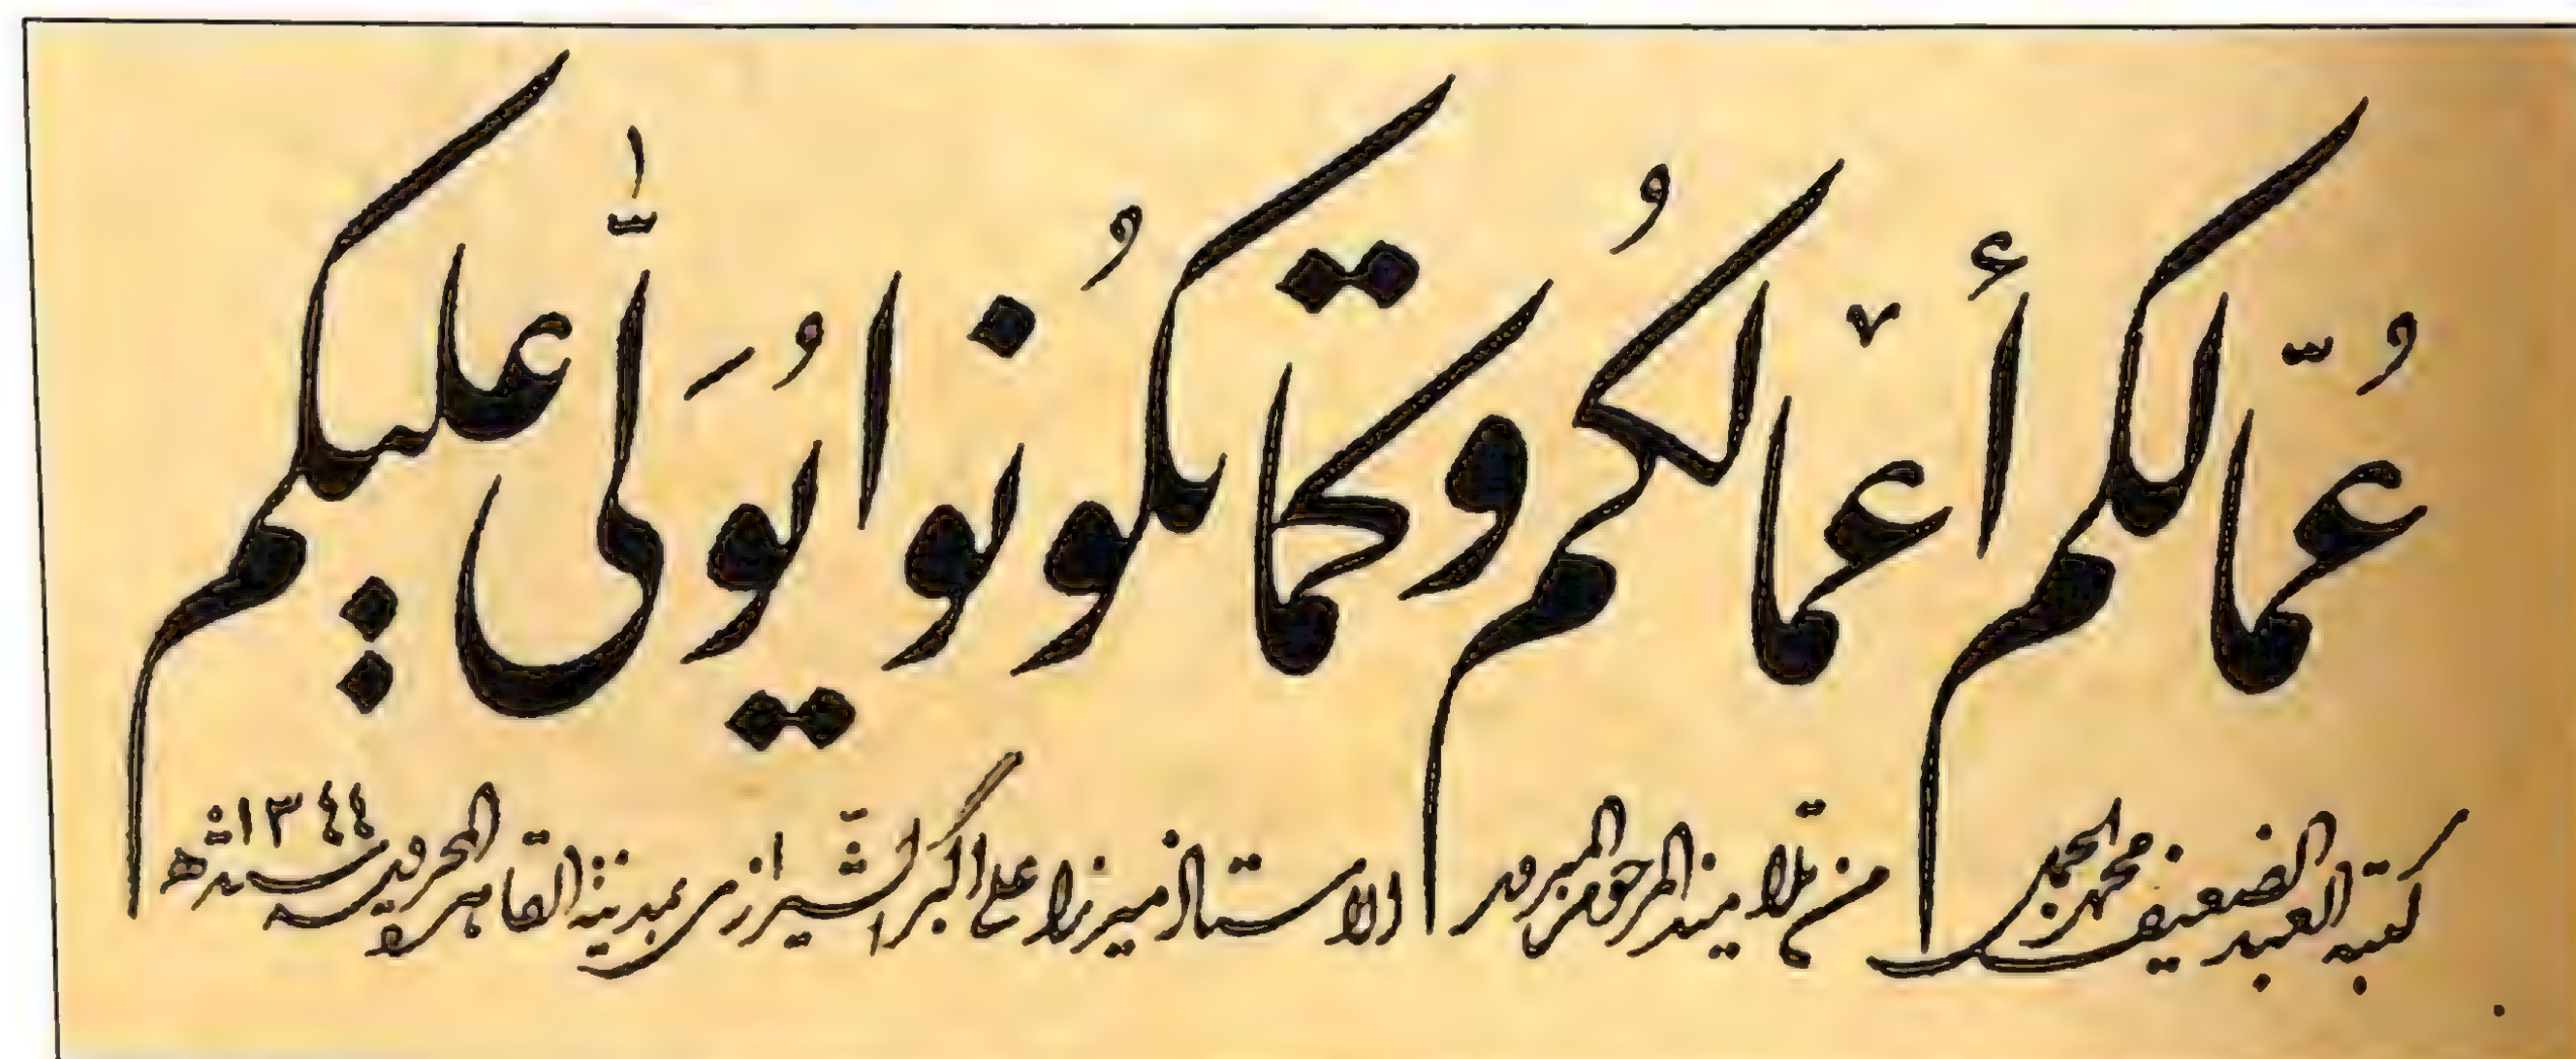 عُمّالكم أعمالكُم وكما تكُونوا يُوَلّٰى عليكم
كتبه العبد الضعيف محمد من تلاميذ المرحوم المبرور الاستاذ ميرزا علي اكبر الشّيرازي بمدينة القاهرة المحروسه سنة ١٣٤٤ هـ